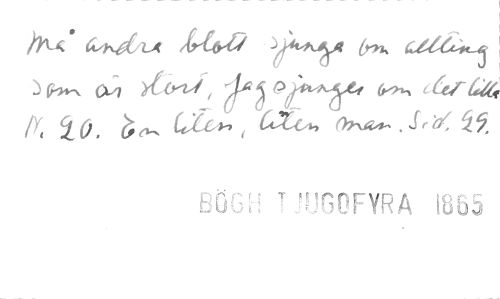 Må andra blott sjunga om allting
som är stort, Jag sjunger om det lilla
N. 20. En liten, liten man. Sid. 29.
BÖGH TJUGOFYRA 1865